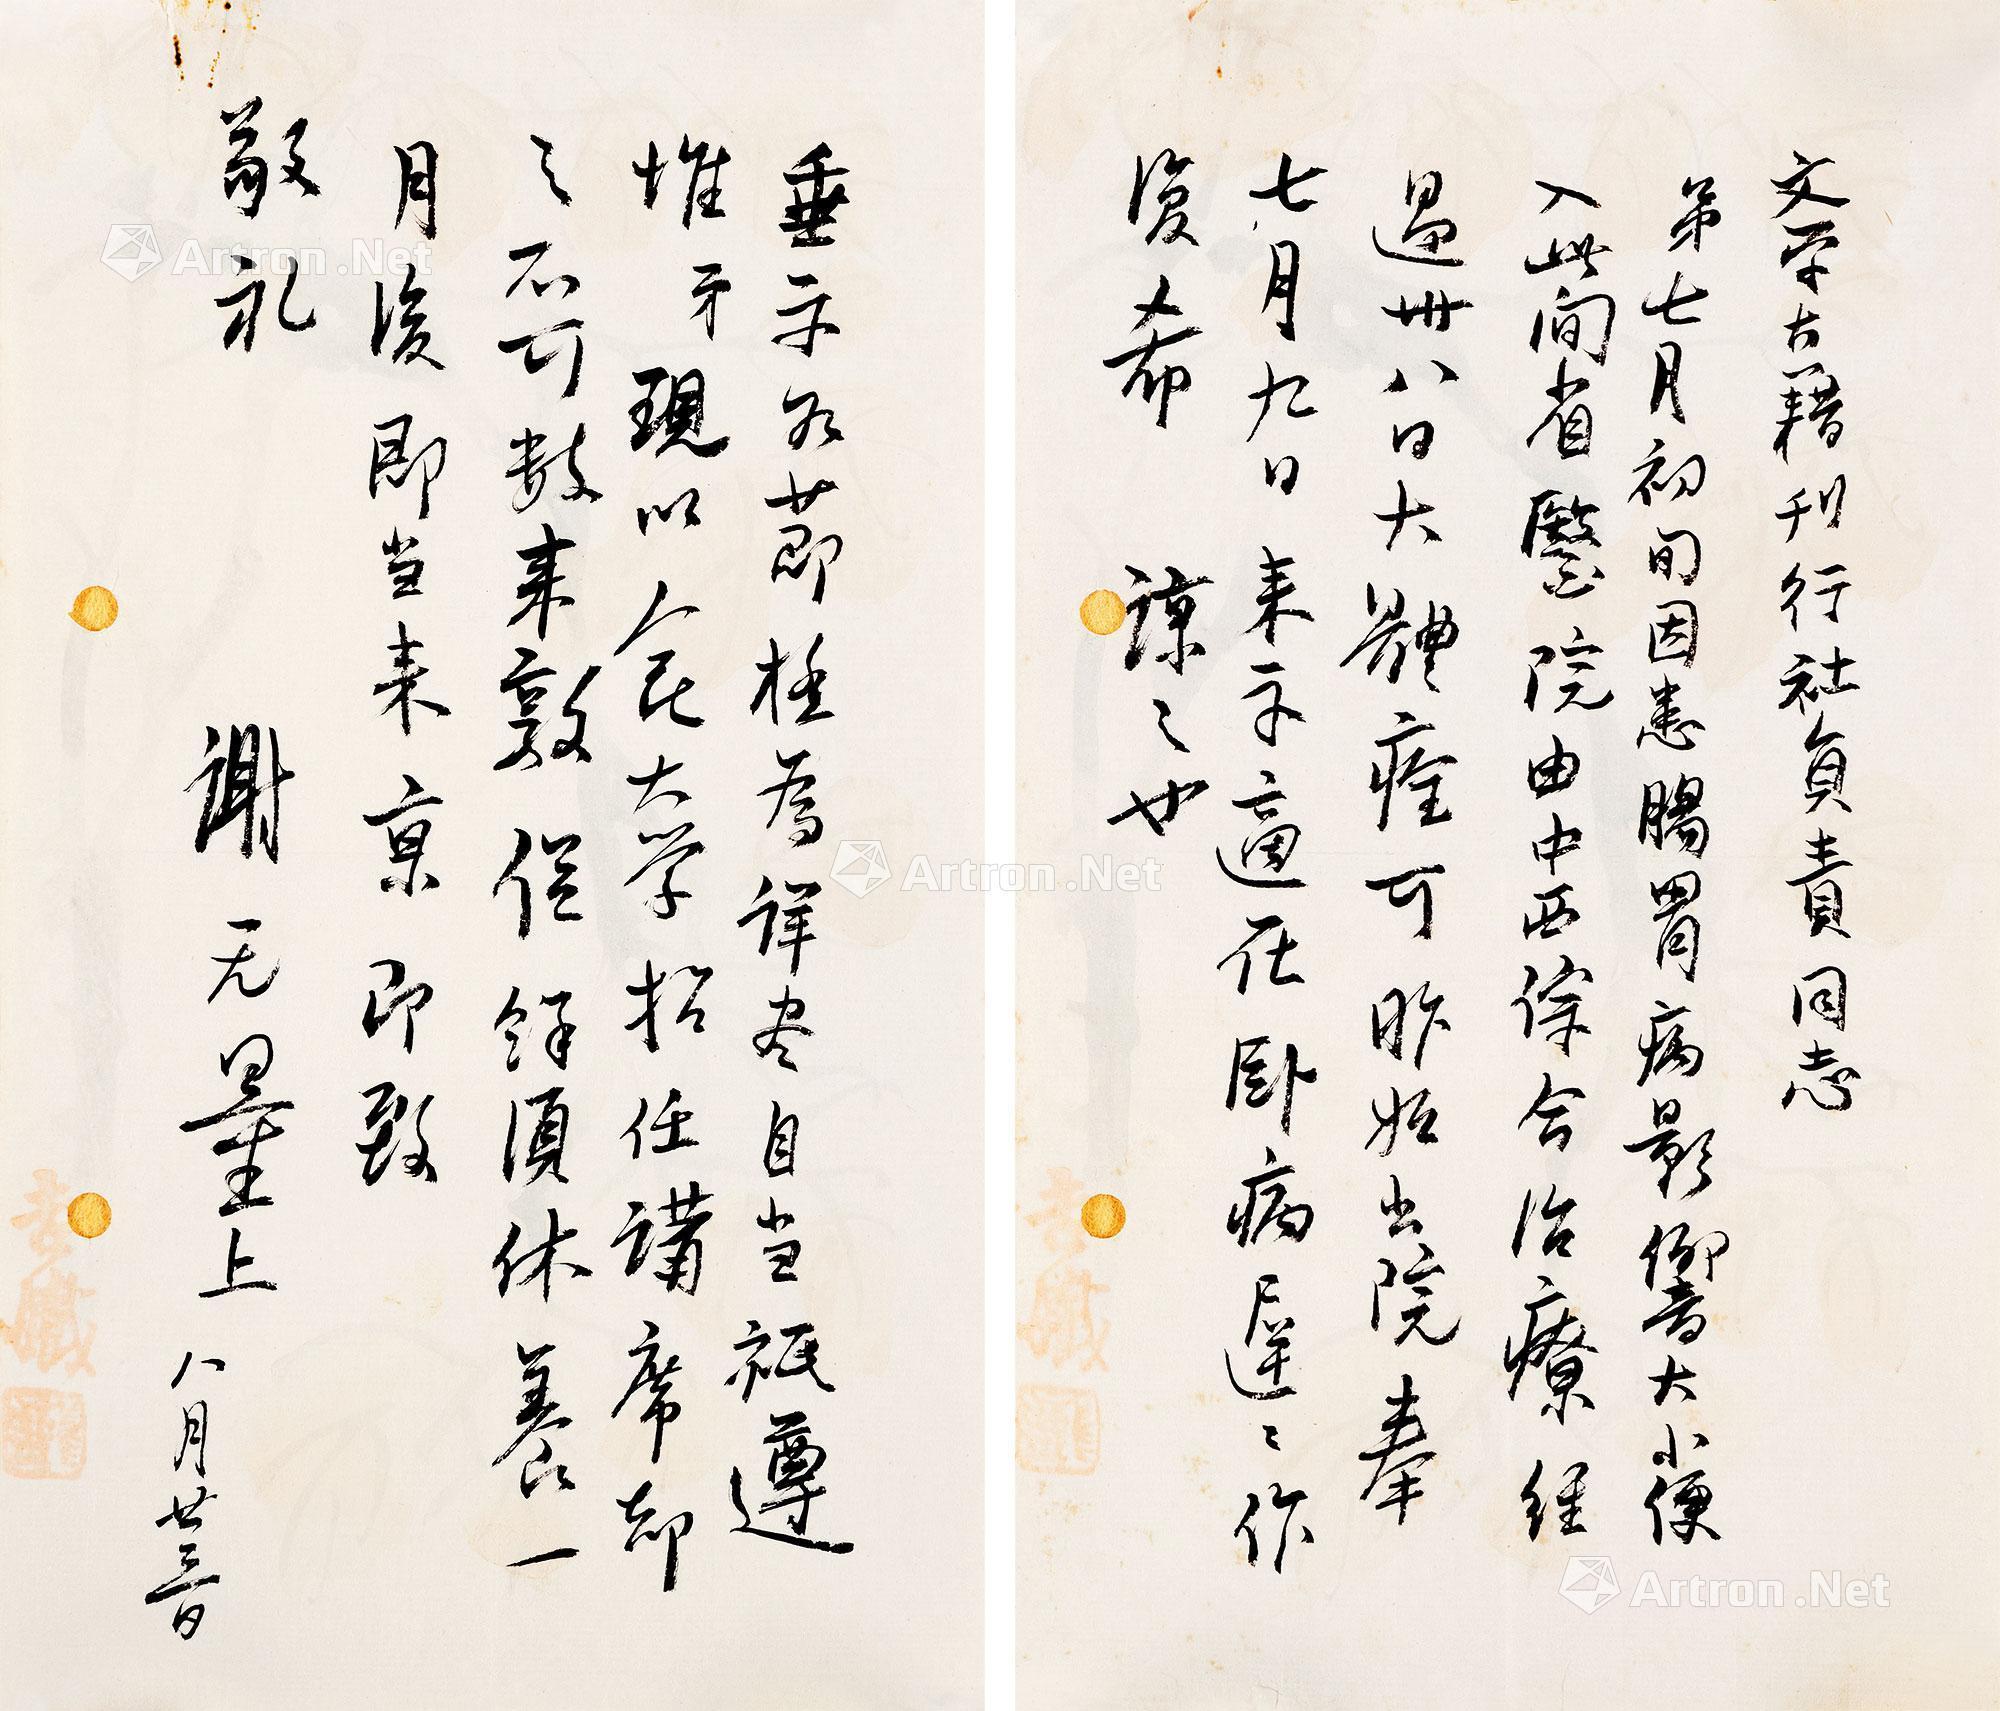 文学古籍刊行社负責同志
弟七月初旬因患腸胃病影響大小便
入此间省醫院由中西綜合治療经
過卅八日大體痊可昨始出院奉
七月九日来示適在卧病居遲々作
復希 諒之也
垂示各節極为詳尽自当祇遵
惟弟現以人民大学招任講席却
之不可敦来敦促須休養一
月後即当来京即致
敬礼
謝无量上 八月廿三日
Artron.Net
Artron.Net
Artron.Net
Artron.Net